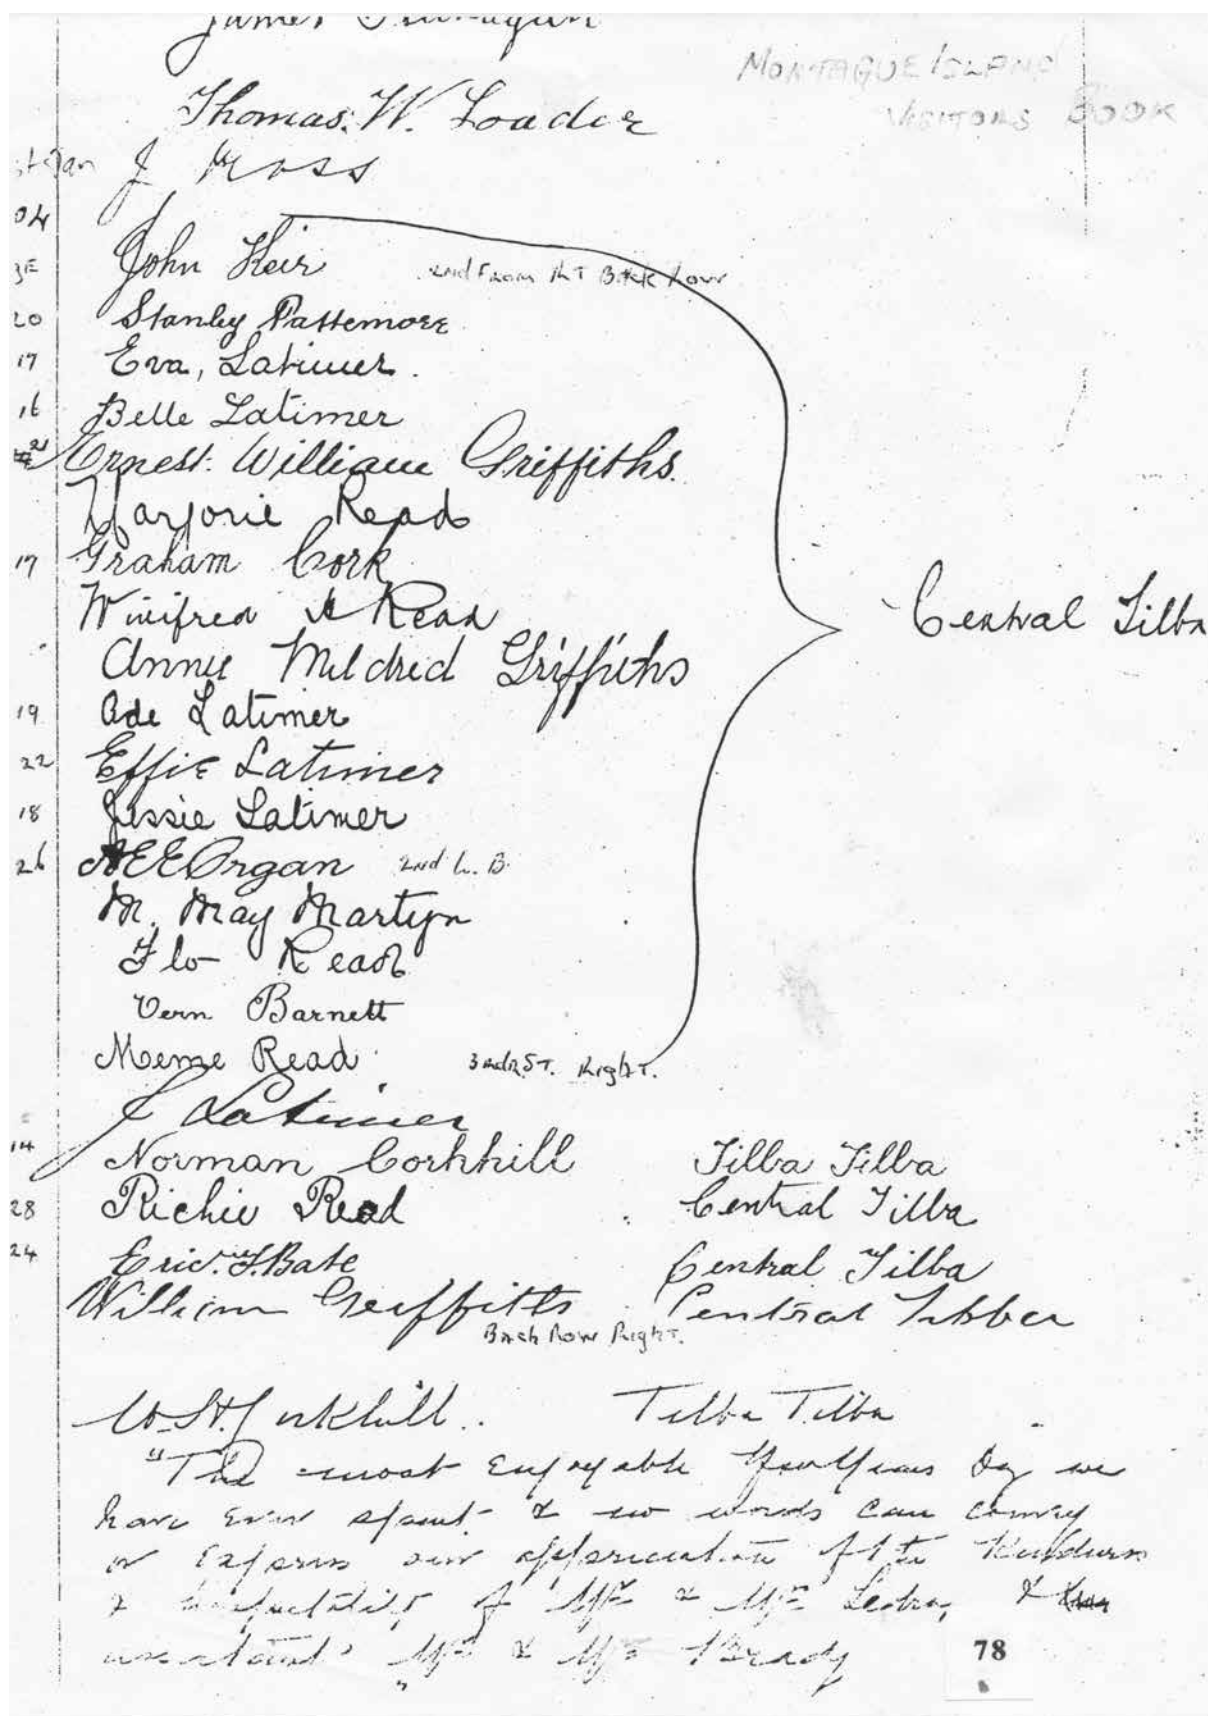 James Flanagan
MONTAGUE ISLAND
VISITORS BOOK
Thomas. W. Loader
Jan J Ross
04
John Keir 2nd From RT Back Row
20 Stanley Pattemore
17 Eva, Latimer.
16 Belle Latimer
21 Ernest. William Griffiths.
Marjorie Read
17 Graham Cork
Winifred Read
Central Tilba
Annie Mildred Griffiths
19 Ade Latimer
22 Effie Latimer
18 Jessie Latimer
26 AEE Organ 2nd L. B.
M. May Martyn
Flo Read
Vern Barnett
Meme Read 3rd R ST. Right.
J Latimer
14 Norman Corkhill Tilba Tilba
28 Richie Read Central Tilba
24 Eric. Bate Central Tilba
William Griffiths Central Tibber
Back Row Right.
W. H. Corkhill. Tilba Tilba
"The most enjoyable New Years Day we
have ever spent & no words can convey
or express our appreciation of the Kindness
& hospitality of Mr & Mrs &
assistant Mr & Mrs Brady
78